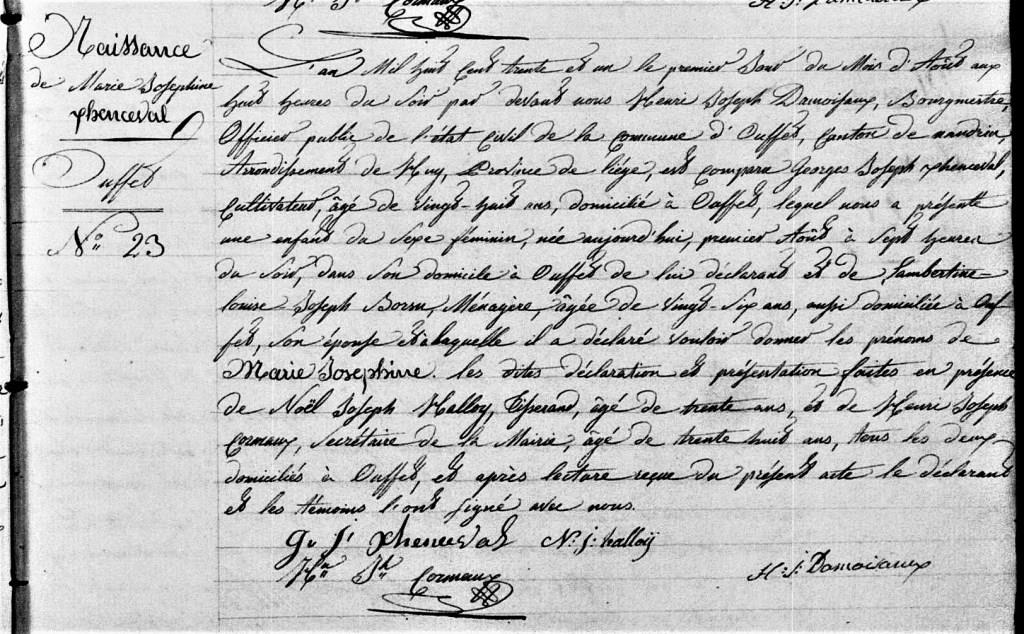 Hri Jh Cormaux
H. J. Damoisaux
Naissance
de Marie Josephine
xhenceval
Ouffet
N.° 23
L'an Mil huit Cent trente et un le premier Jour du Mois d'Août aux
huit heures du Soir par devant nous Henri Joseph Damoisaux, Bourgmestre,
Officier public de l'état Civil de la Commune d'Ouffet, Canton de nandrin,
Arrondissement de Huy, Province de liége, est Comparu Georges Joseph xhenceval,
Cultivateur, âgé de Vingt-huit ans, domicilié à Ouffet, lequel nous a présenté
une enfant du Sexe féminin, née aujourd'hui, premier Août à Sept heures
du Soir, dans Son domicile à Ouffet de lui déclarant et de Lambertine-
louise Joseph Borsu, Ménagère, âgée de Vingt-Six ans, aussi domiciliée à Ouf
fet, Son épouse et à laquelle il a déclaré Vouloir donner les prénoms de
Marie Josephine. les dites déclaration et présentation faites en présence
de Noël Joseph Halloy, Tisserand, âgé de trente ans, et de Henri Joseph
Cormaux, Secrétaire de la Mairie, âgé de trente huit ans, tous les deux
domiciliés à Ouffet, et après lecture reçue du présent acte le déclarant
et les témoins l'ont Signé avec nous.
G. J. xhenceval N. J. halloij
Hri Jh Cormaux
H. J. Damoisaux